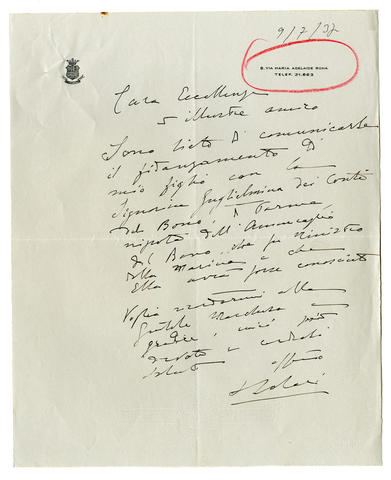 9/7/37
8. VIA MARIA ADELAIDE ROMA
TELEF. 31.663
Cara Eccellenza
e illustre amico
Sono lieto di comunicarle
il fidanzamento di
mio figlio con la
Signorina Guglielmina dei Conti
del Bono, di Parma,
nipote dell'Ammiraglio
del Bono, che fu Ministro
della Marina e che
Ella avrà forse conosciuto
Voglia ricordarmi alla
Gentile Marchesa e
gradire, i miei più
devoti e cordiali
saluti